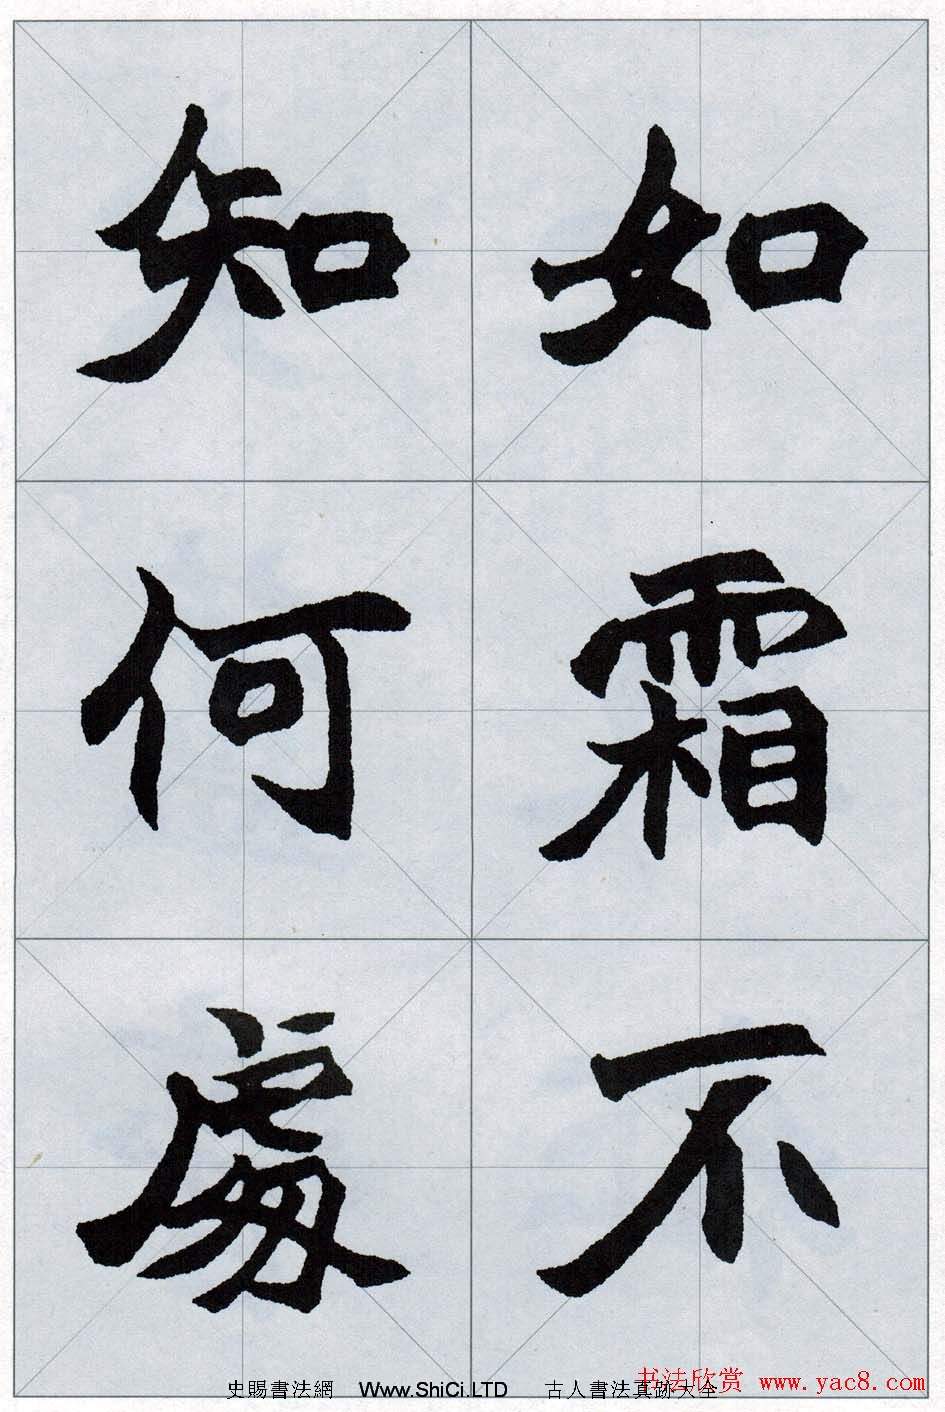 如霜不
知何處
书法欣赏 www.yac8.com
史賜書法網 Www.ShiCi.LTD 古人書法真跡大全